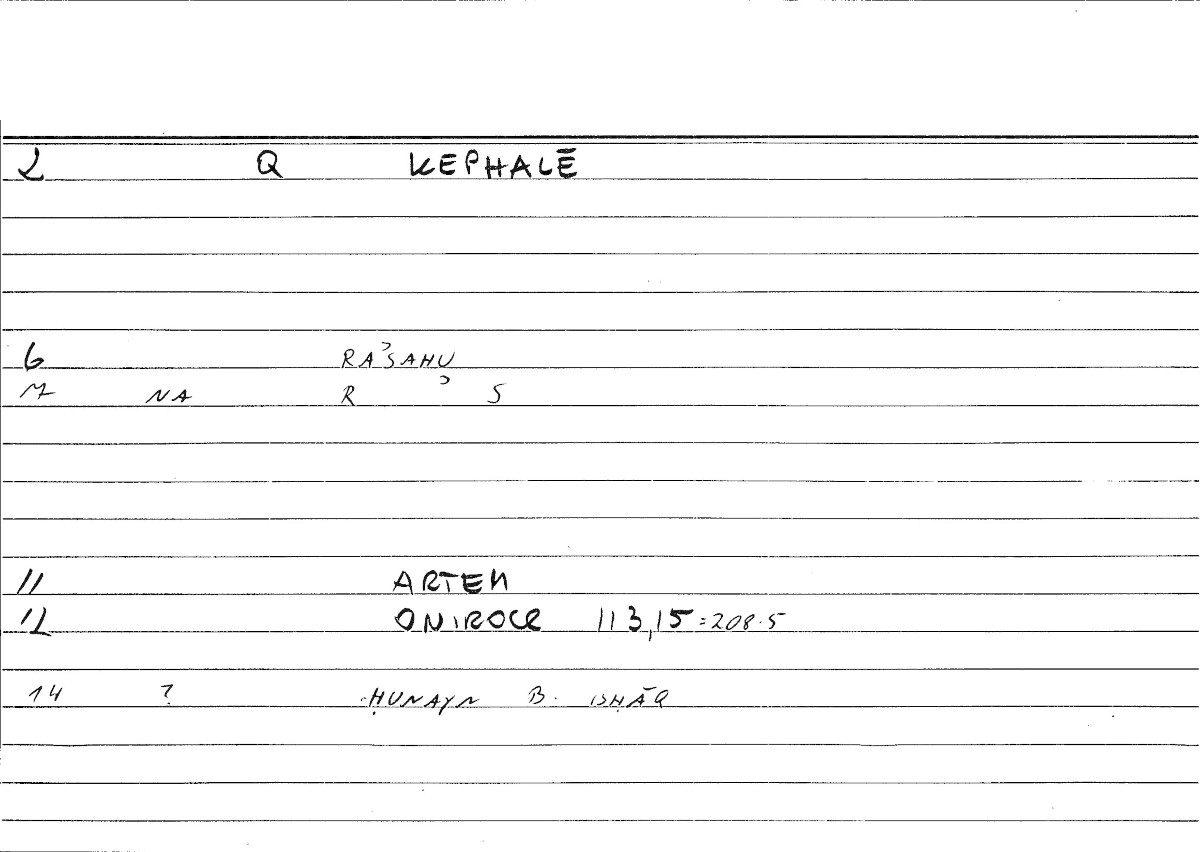 2 Q KEPHALĒ
6 RAʾSAHU
7 NA R ʾ S
11 ARTEM
12 ONIROCR 113,15=208.5
14 ? ḤUNAYN B. ISḤĀQ